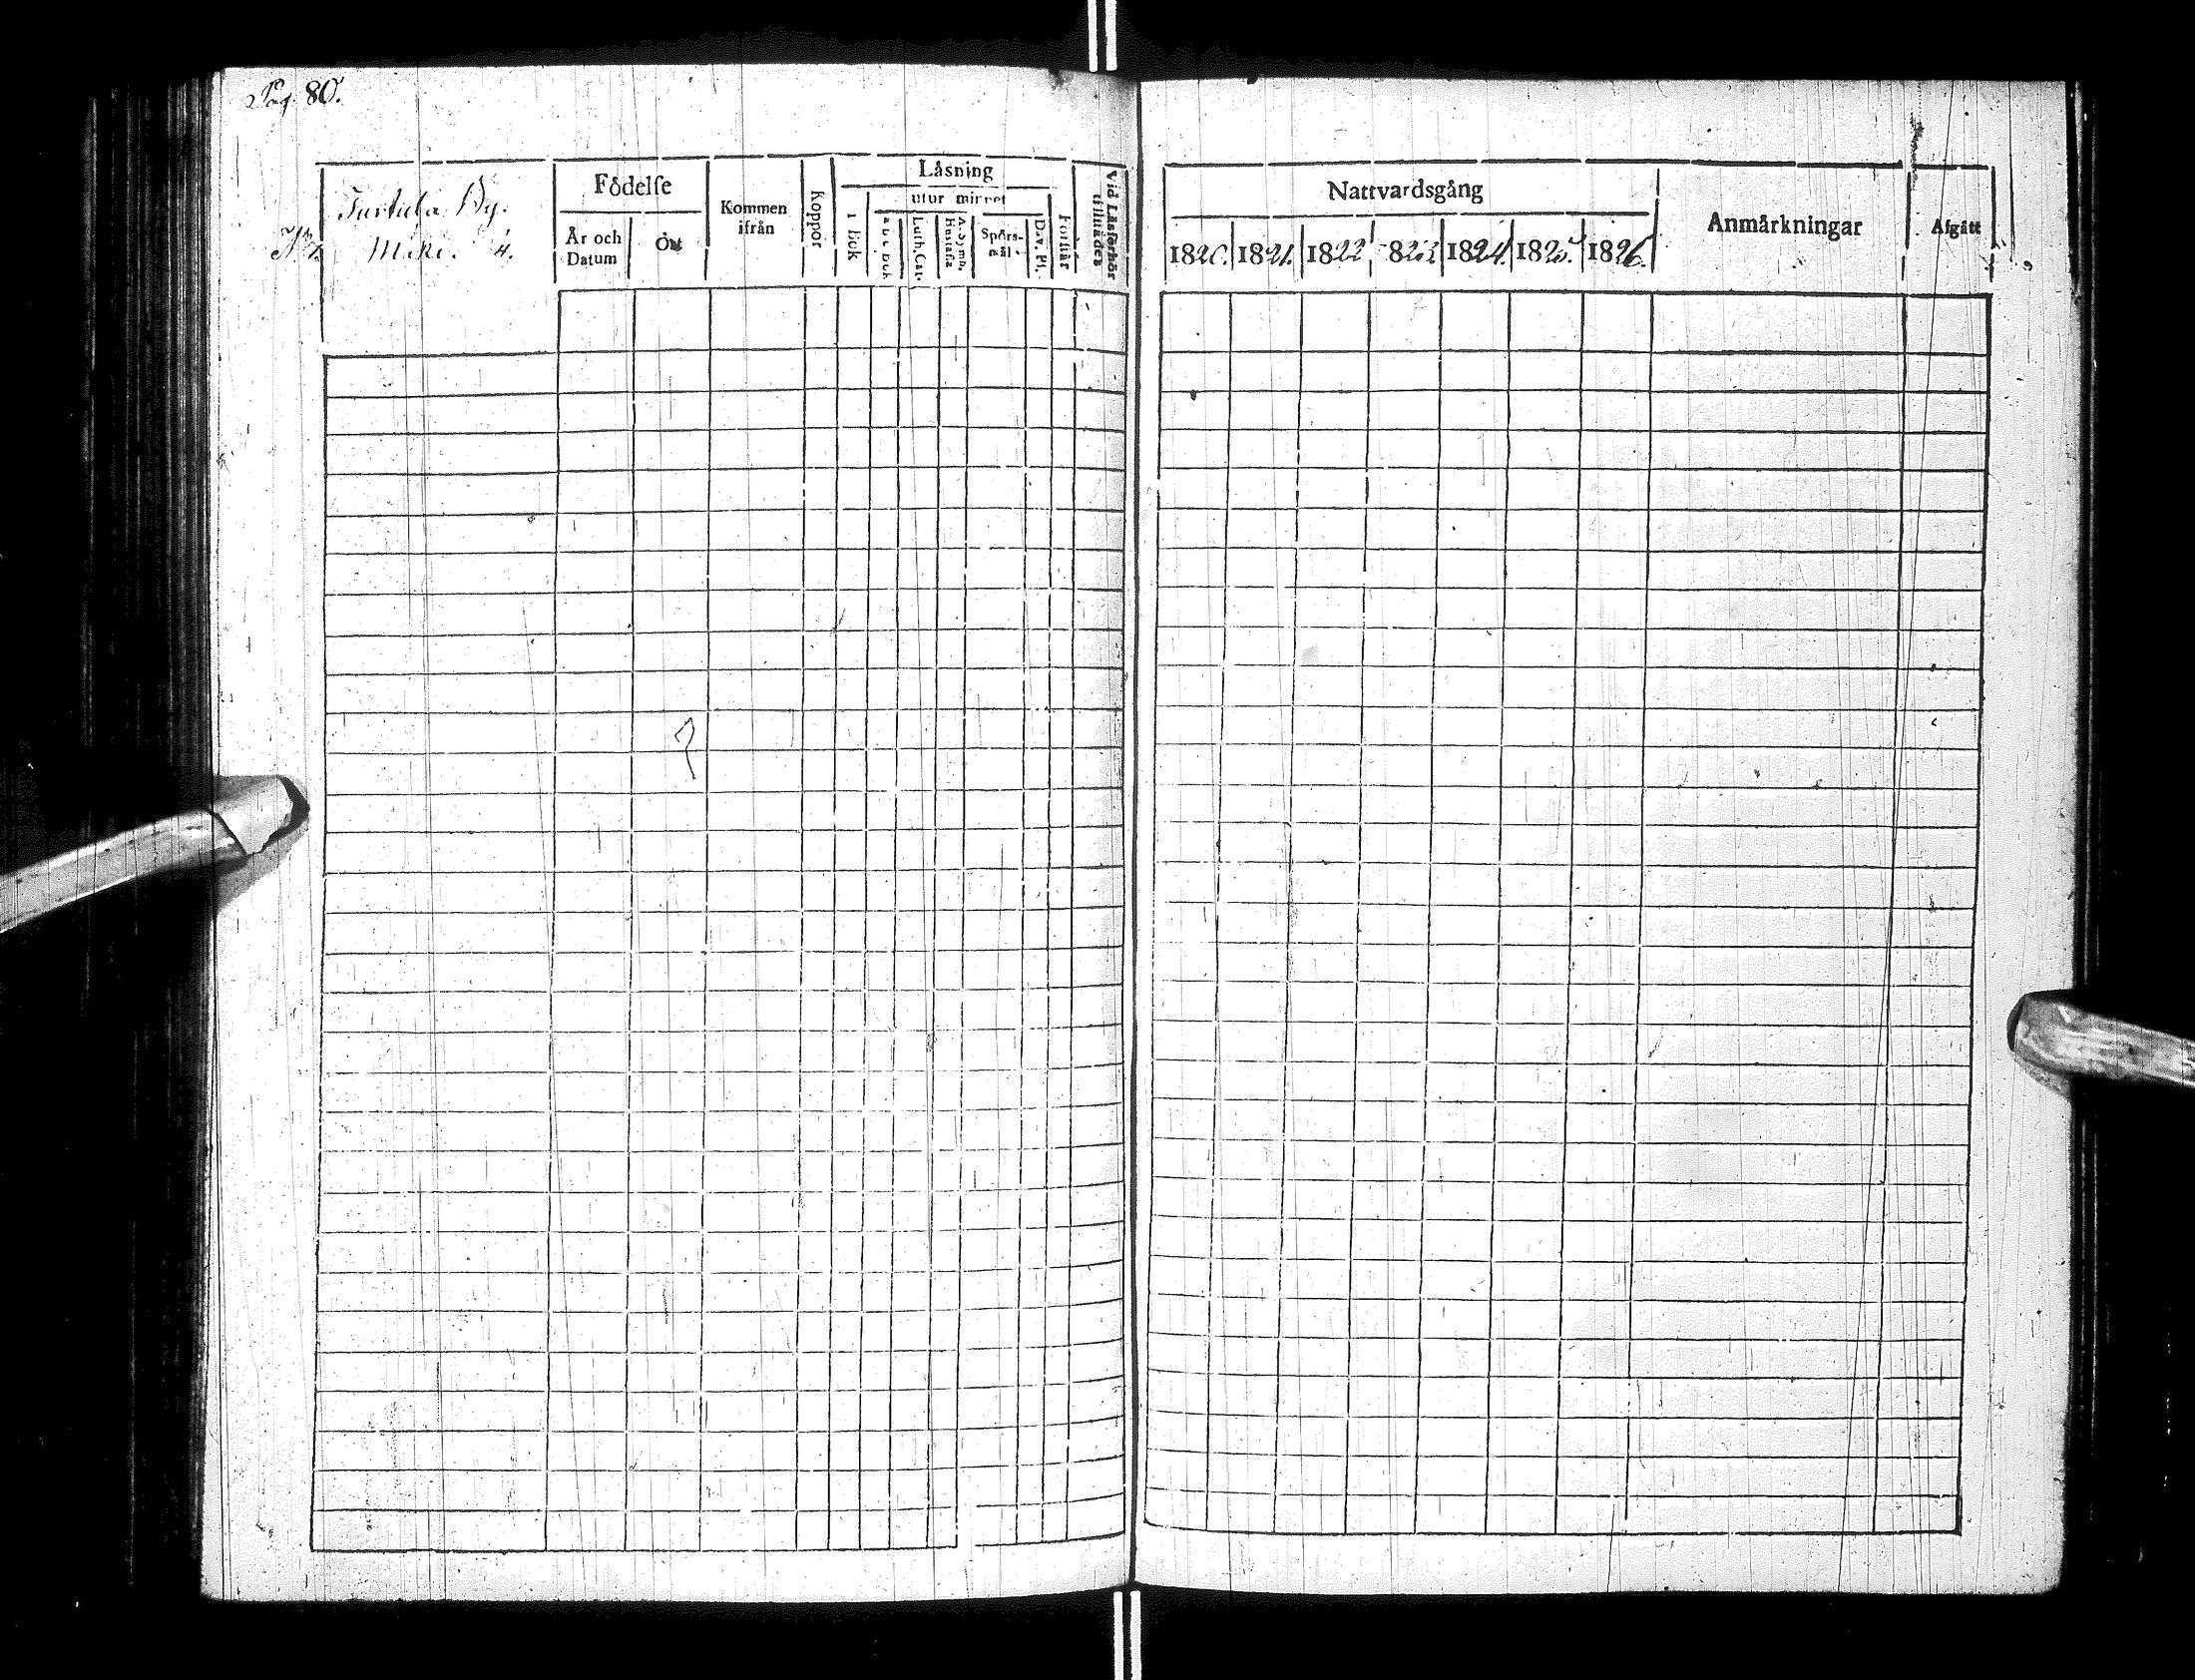 Pag. 80.
Turtula By.
Miki. 4.
Födelse
År och Datum
Ort
Kommen ifrån
Koppor
Läsning
utur minnet
i Bok
Luth. Cat.
A. Symb.
Hustafla
Spörsmål
Dav. Ps.
Förstår
Vid Läsförhör tillstädes
Nattvardsgång
1820. 1821. 1822 1823 1824. 1825. 1826.
Anmärkningar
Afgått